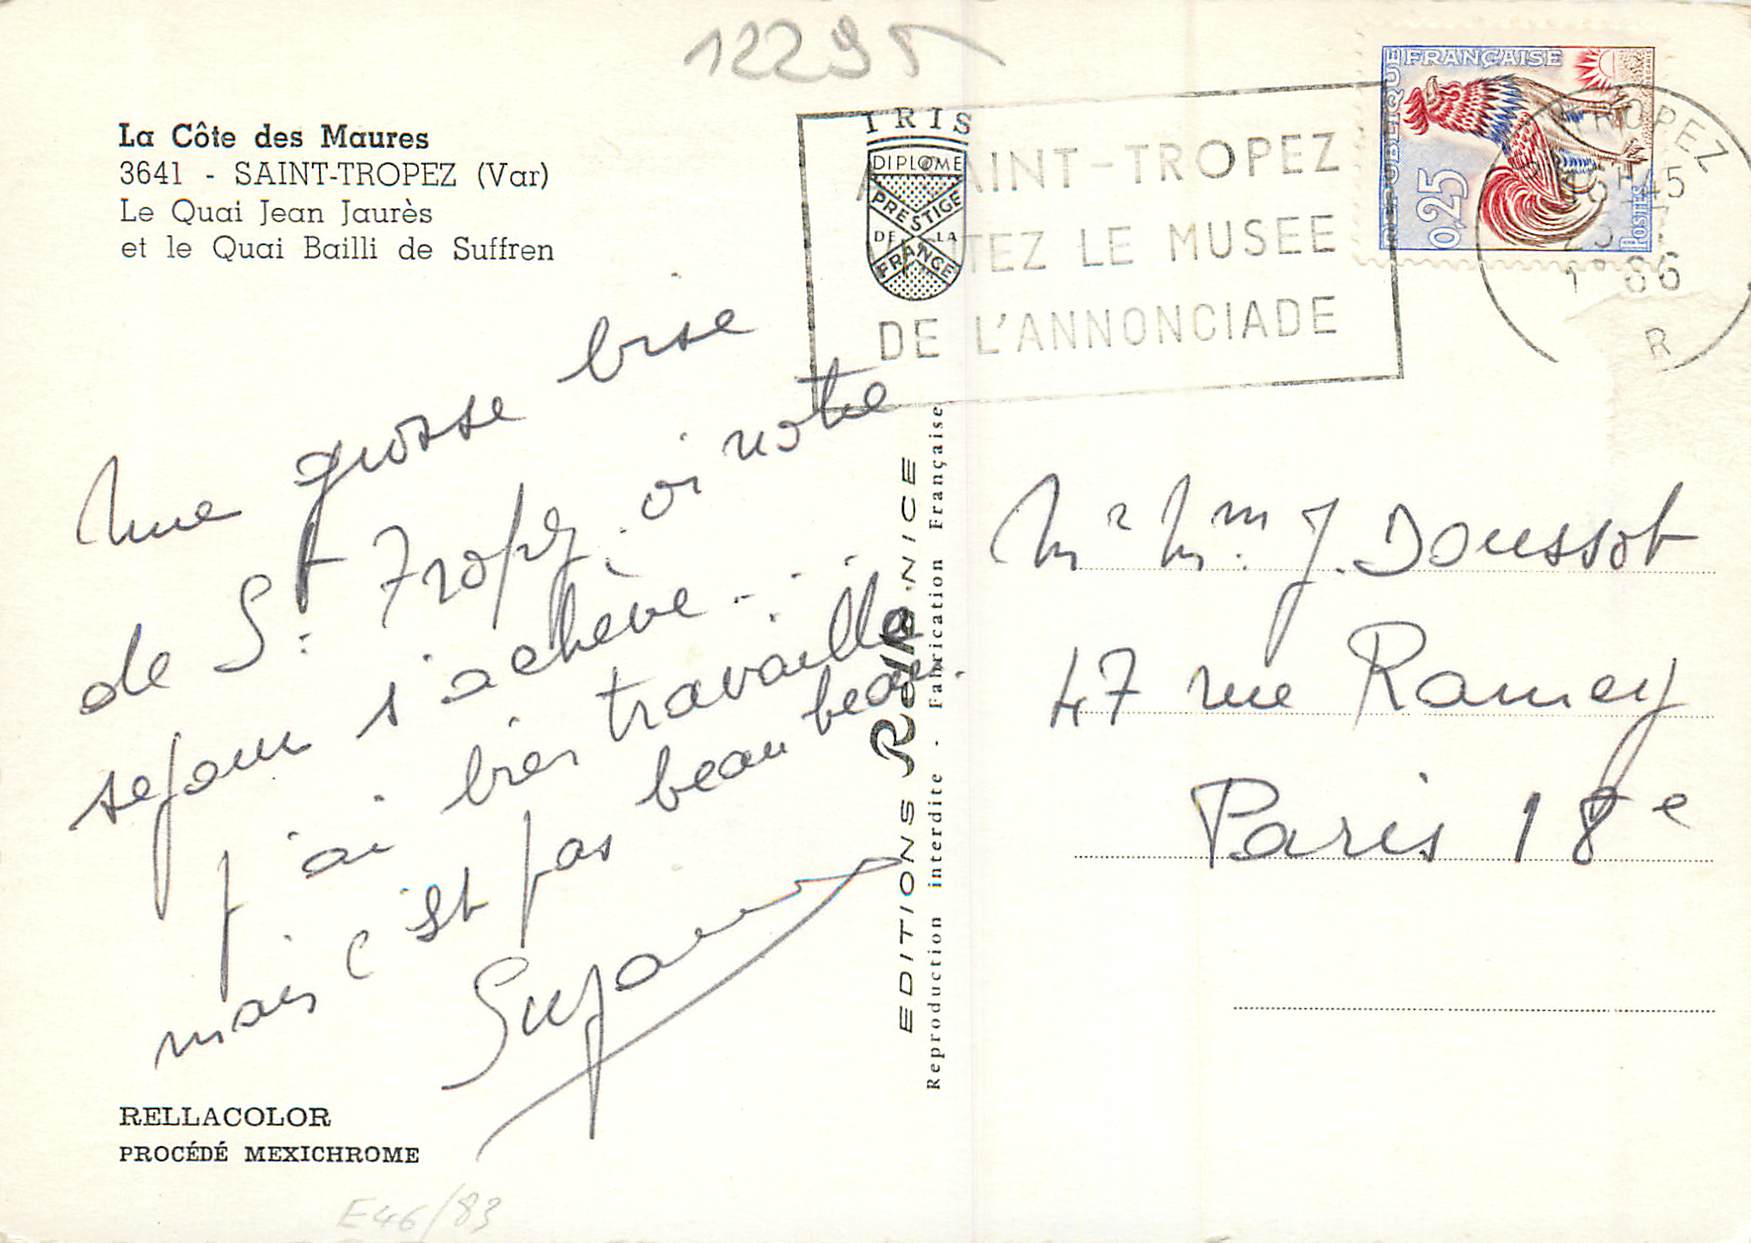 12295
La Côte des Maures
3641 - SAINT-TROPEZ (Var)
Le Quai Jean Jaurès
et le Quai Bailli de Suffren
IRIS
DIPLOME
PRESTIGE
DE LA
FRANCE
AINT-TROPEZ
TEZ LE MUSEE
DE L'ANNONCIADE
REPUBLIQUE FRANÇAISE
0,25
POSTES
TROPEZ
R
Une grosse bise
de St. Tropez, où notre
sejour s'achève....
j'ai bien travaillé
mais c'est pas beau beau.
Suzanne
Mr Mme. J. Doussot
47 rue Ramey
Paris 18e
EDITIONS Rella NICE
Reproduction interdite - Fabrication Française
RELLACOLOR
PROCÉDÉ MEXICHROME
E46/83